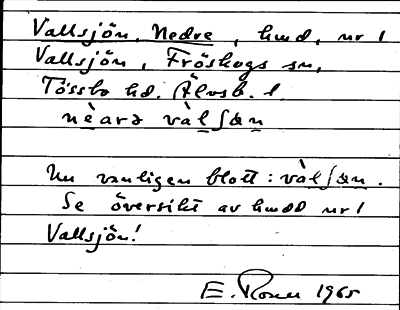 Vallsjön, Nedre, hmd, nr 1
Vallsjön, Fröskogs sn,
Tössbo hd. Älvsb. l.
nèarə vàlʃən
Nu vanligen blott: vàlʃən.
Se översikt av hmdd nr 1
Vallsjön!
E. 1965